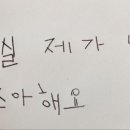 실 제가
좋아해요